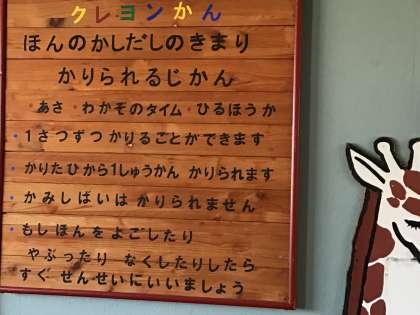 クレヨンかん
ほんのかしだしのきまり
かりられるじかん
・あさ ・わかそのタイム ・ひるほうか
・1さつずつかりることができます
・かりたひから1しゅうかん かりられます
・かみしばいは かりられません
・もしほんをよごしたり
やぶったり なくしたりしたら
すぐ せんせいにいいましょう